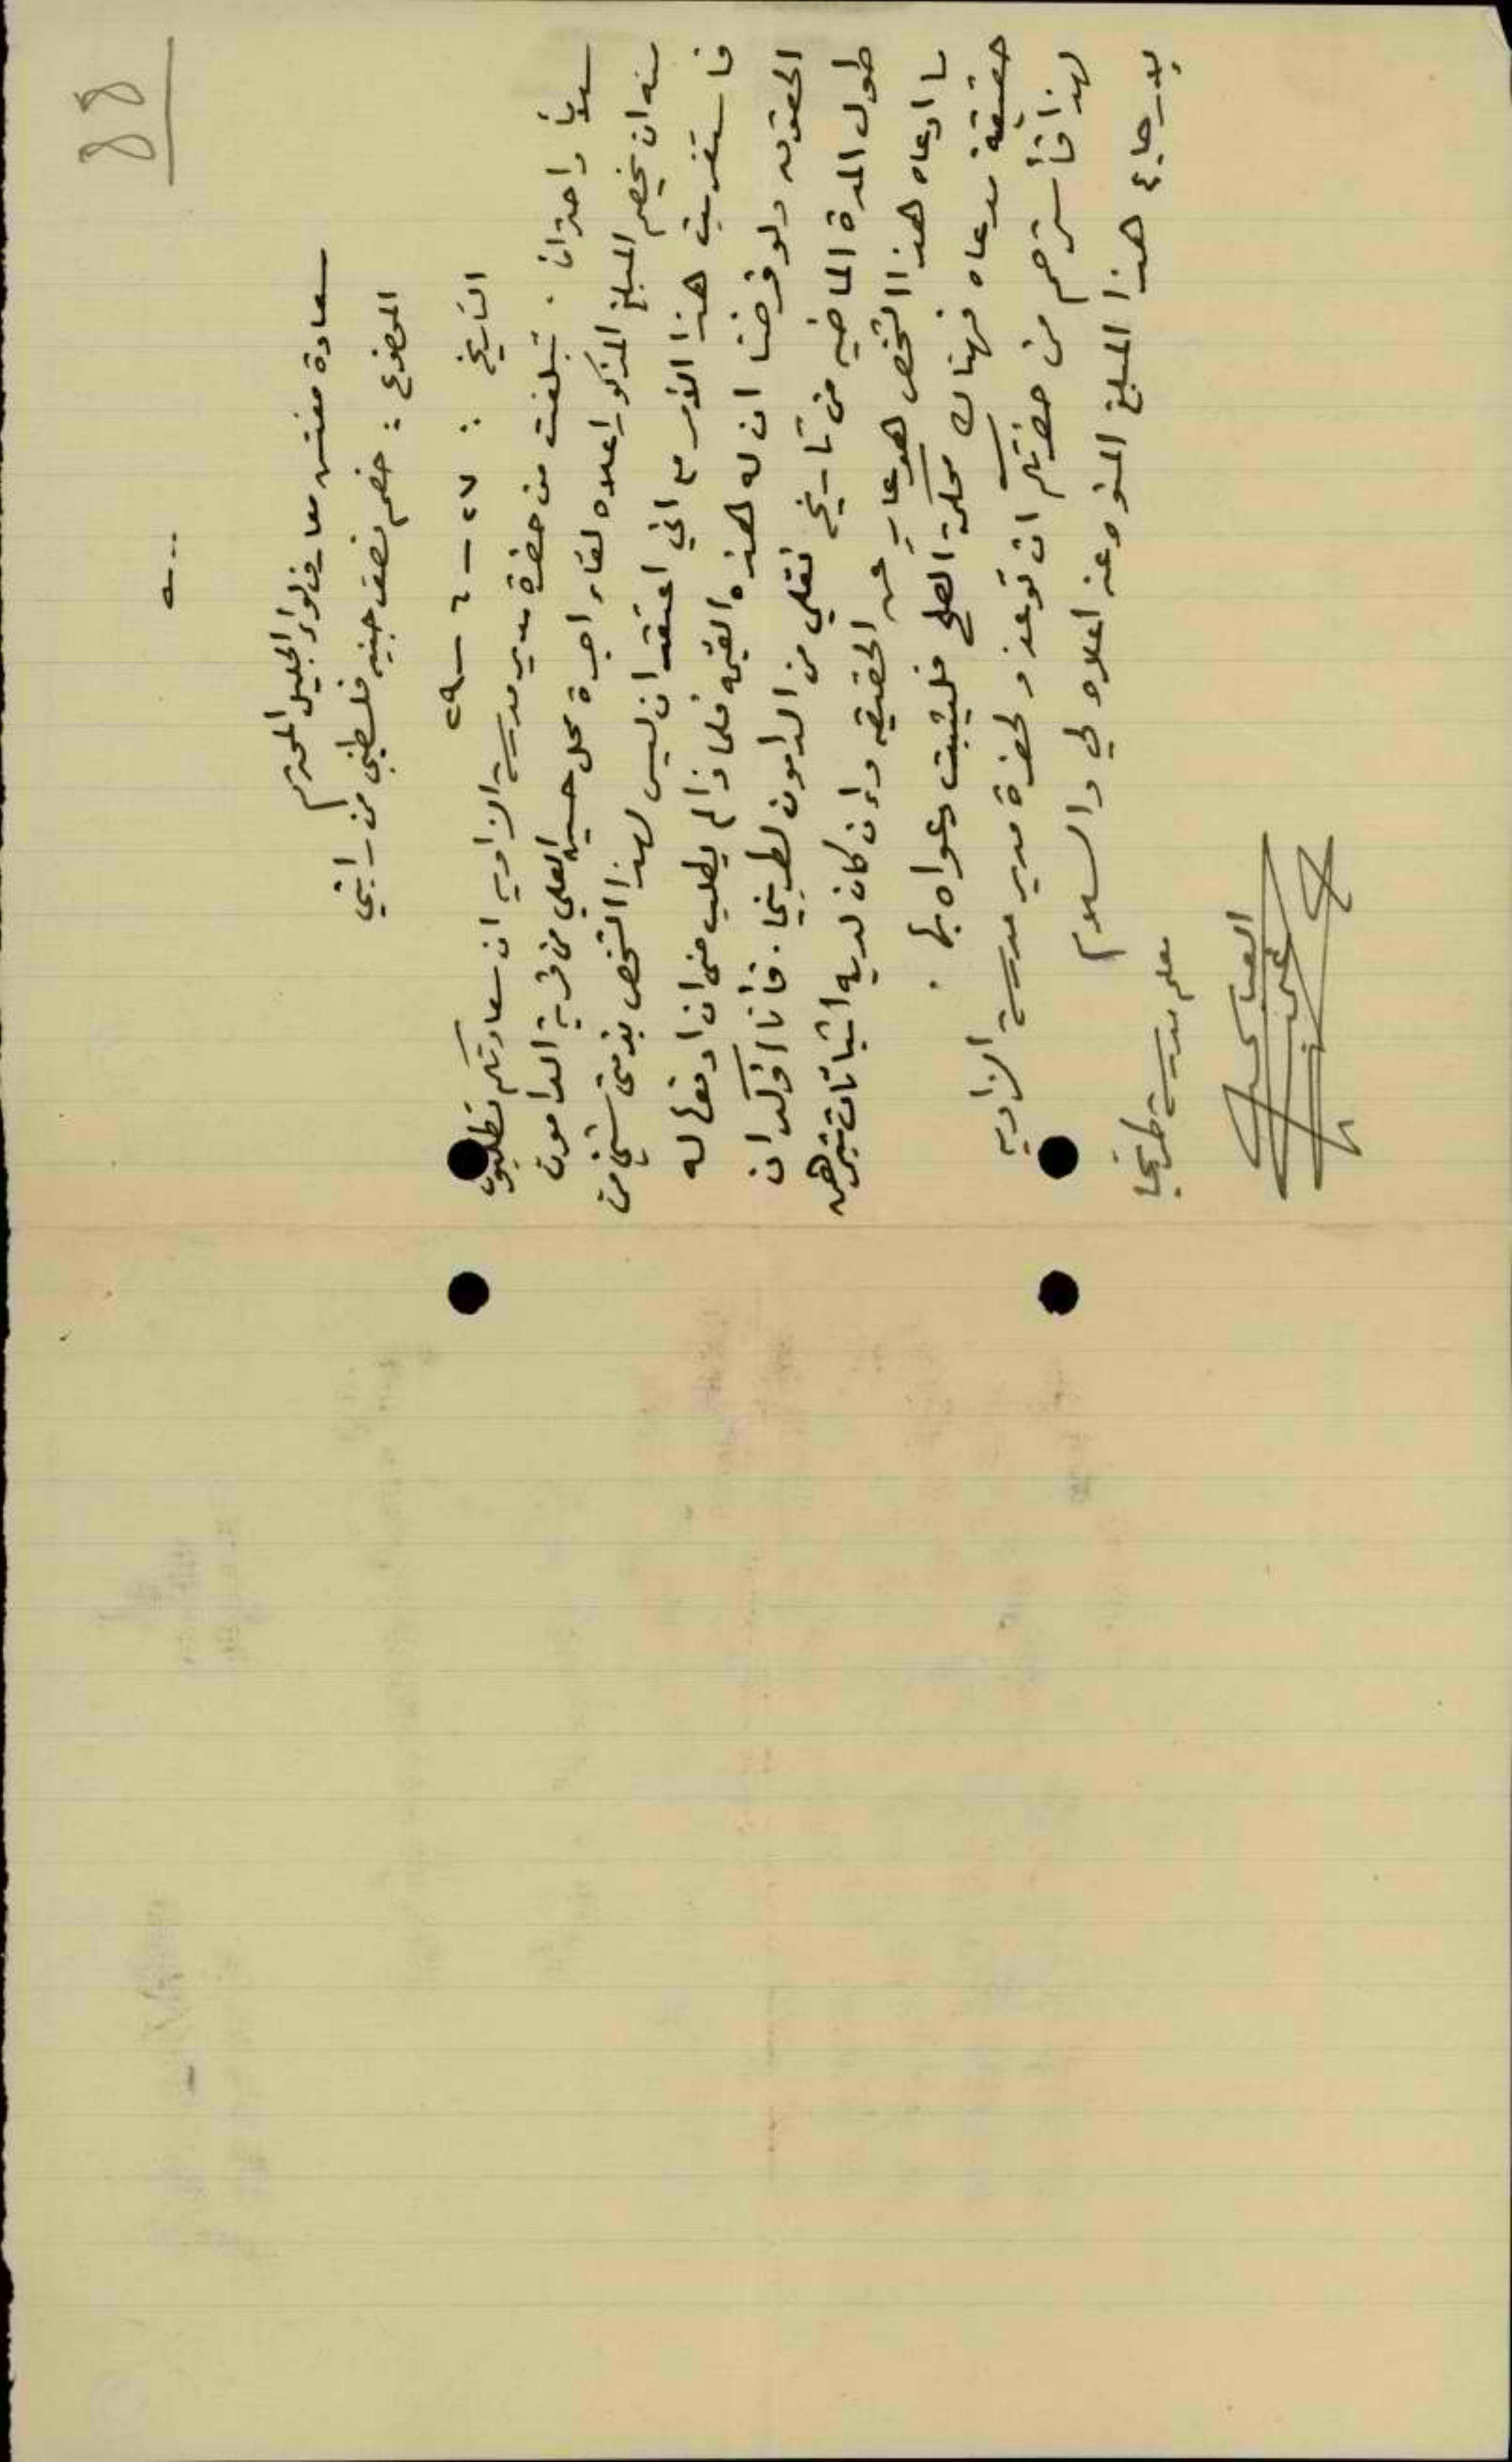 88
سعادة مفتش معارف لواء الجليل المحترم
الموضوع : خصم نصف جنيه فلسطيني من راتبي
التاريخ : ٢٧ - ٦ - ٢٩
سلاماً واحتراماً . تبلغت من حضرة مدير مدرسة الزاويه ان سعادتكم تطلبون
منه ان يخصم المبلغ المذكور اعلاه لقاء اجرة محل حسين العلي من قرية الدامون
فاستغربت هذا الأمر مع اني اعتقد ان ليس لهذا الشخص بذمتي شيئاً من
الحقوق ولو فرضنا ان له هذه القيمه فلماذا لم يطلب مني ان ادفعها له
طول المدة الماضيه من تاريخ نقلي من الدامون لطربيخا . فأنا اؤكد ان
ما ادعاه هذا الشخص هو عارٍ عن الحقيقه وإن كان لديه اثباتات تبرهن
حقيقة مدعاه فهناك محكمة الصلح فليثبت دعواه بها .
لهذا فأسترحم من حضرتكم ان توعزو لحضرة مدير مدرسة الزاويه
بارجاع هذا المبلغ المنوه عنه اعلاه لي والسلام
معلم مدرسة طربيخا